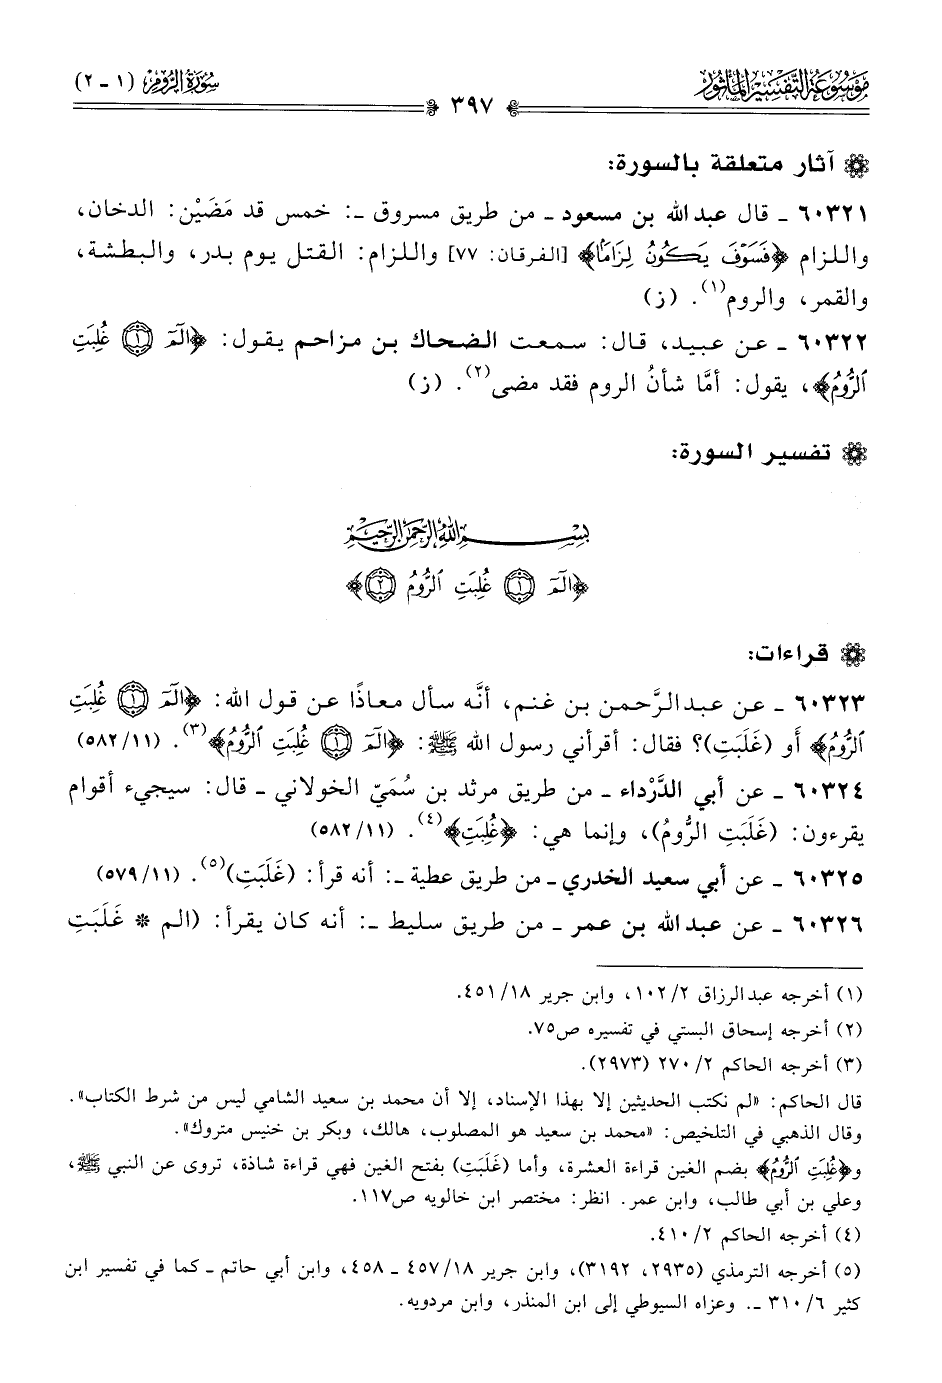 مَوْسُوعَة التَّفْسِير المَأثُور
سُورَةُ الرُّومِ (١ - ٢)
٣٩٧
آثار متعلقة بالسورة:
٦٠٣٢١ - قال عبدالله بن مسعود - من طريق مسروق -: خمس قد مَضَيْن: الدخان،
واللزام ﴿فَسَوْفَ يَكُونُ لِزَامًا﴾ [الفرقان: ٧٧] واللزام: القتل يوم بدر، والبطشة،
والقمر، والروم(١). (ز)
٦٠٣٢٢ - عن عبيد، قال: سمعت الضحاك بن مزاحم يقول: ﴿الٓمٓ ۝١ غُلِبَتِ
ٱلرُّومُ﴾، يقول: أمَّا شأنُ الروم فقد مضى(٢). (ز)
تفسير السورة:
بِسْمِ اللَّهِ الرَّحْمَنِ الرَّحِيمِ
﴿الٓمٓ ۝١ غُلِبَتِ ٱلرُّومُ ۝٢﴾
قراءات:
٦٠٣٢٣ - عن عبدالرَّحمن بن غنم، أنَّه سأل معاذًا عن قول الله: ﴿الٓمٓ ۝١ غُلِبَتِ
ٱلرُّومُ﴾ أو (غَلَبَت)؟ فقال: أقرأني رسول الله ﷺ: ﴿الٓمٓ ۝١ غُلِبَتِ ٱلرُّومُ﴾(٣). (٥٨٢/١١)
٦٠٣٢٤ - عن أبي الدَّرْداء - من طريق مرثد بن سُمَيّ الخولاني - قال: سيجيء أقوام
يقرءون: (غَلَبَتِ الرُّومُ)، وإنما هي: ﴿غُلِبَتِ﴾(٤). (٥٨٢/١١)
٦٠٣٢٥ - عن أبي سعيد الخدري - من طريق عطية -: أنه قرأ: (غَلَبَتِ)(٥). (٥٧٩/١١)
٦٠٣٢٦ - عن عبدالله بن عمر - من طريق سليط -: أنه كان يقرأ: (الم * غَلَبَتِ
(١) أخرجه عبدالرزاق ١٠٢/٢، وابن جرير ٤٥١/١٨.
(٢) أخرجه إسحاق البستي في تفسيره ص٧٥.
(٣) أخرجه الحاكم ٢٧٠/٢ (٢٩٧٣).
قال الحاكم: «لم نكتب الحديثين إلا بهذا الإسناد، إلا أن محمد بن سعيد الشامي ليس من شرط الكتاب».
وقال الذهبي في التلخيص: «محمد بن سعيد هو المصلوب، هالك، وبكر بن خنيس متروك».
و﴿غُلِبَتِ ٱلرُّومُ﴾ بضم الغين قراءة العشرة، وأما (غَلَبَتِ) بفتح الغين فهي قراءة شاذة، تروى عن النبي ﷺ،
وعلي بن أبي طالب، وابن عمر. انظر: مختصر ابن خالويه ص١١٧.
(٤) أخرجه الحاكم ٤١٠/٢.
(٥) أخرجه الترمذي (٢٩٣٥، ٣١٩٢)، وابن جرير ٤٥٧/١٨ - ٤٥٨، وابن أبي حاتم - كما في تفسير ابن
كثير ٣١٠/٦ -. وعزاه السيوطي إلى ابن المنذر، وابن مردويه.